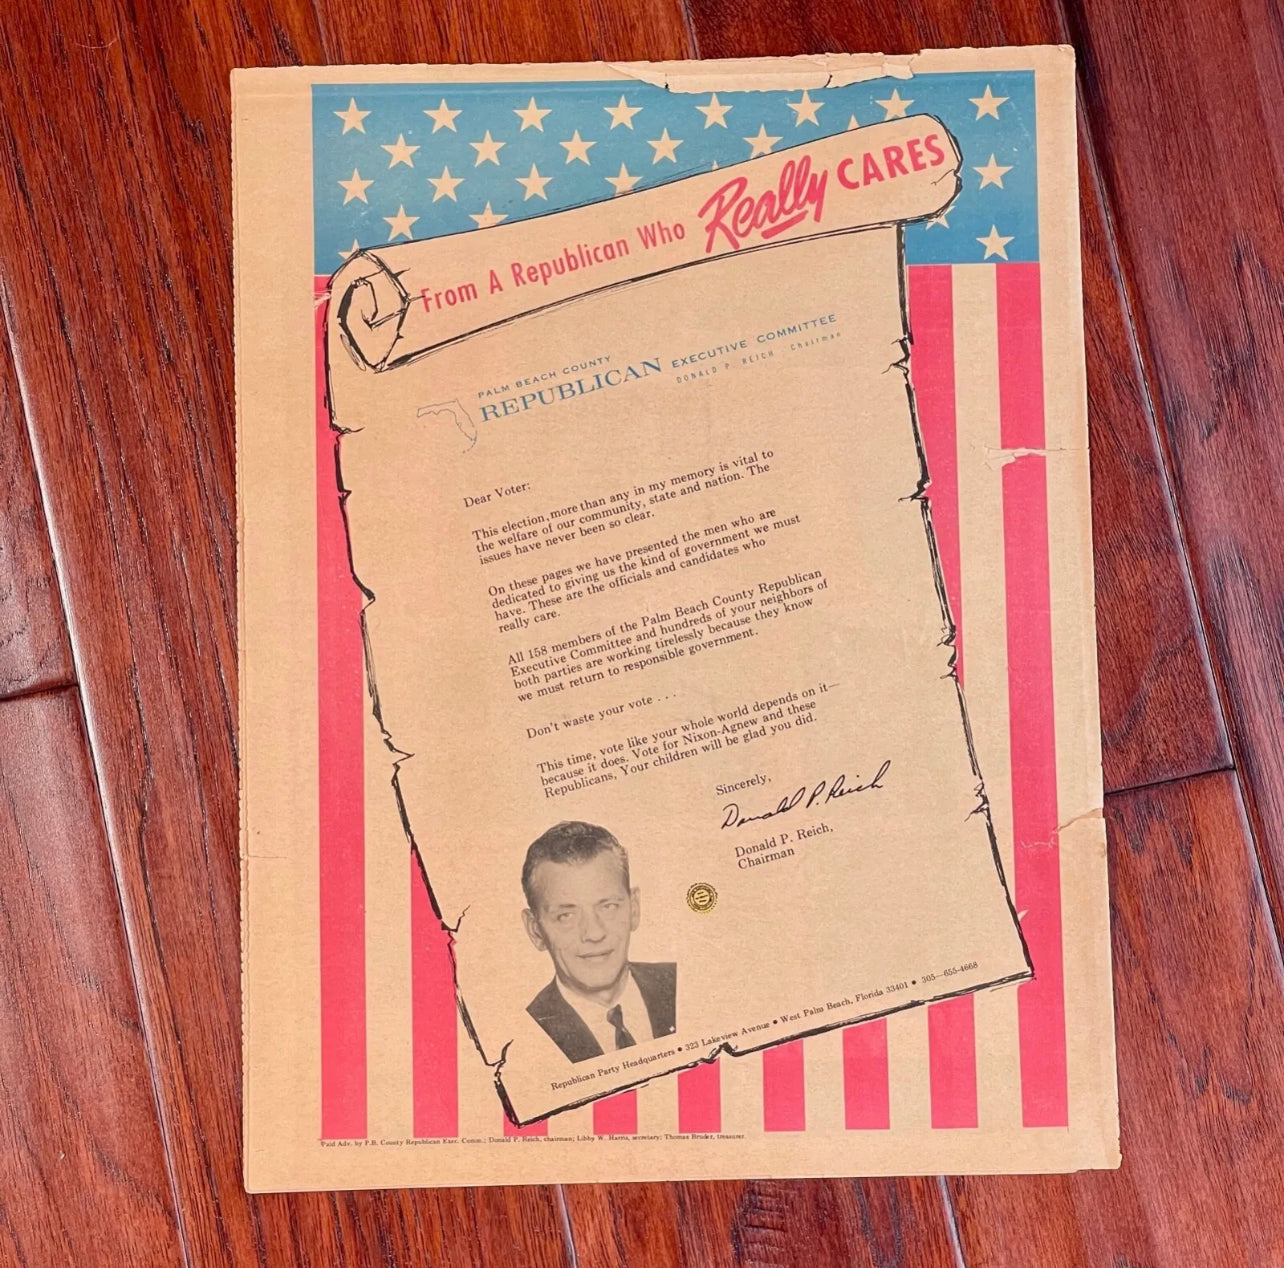 From A Republican Who Really CARES
PALM BEACH COUNTY
REPUBLICAN EXECUTIVE COMMITTEE
DONALD P. REICH Chairman
Dear Voter:
This election, more than any in my memory is vital to
the welfare of our community, state and nation. The
issues have never been so clear.
On these pages we have presented the men who are
dedicated to giving us the kind of government we must
have. These are the officials and candidates who
really care.
All 158 members of the Palm Beach County Republican
Executive Committee and hundreds of your neighbors of
both parties are working tirelessly because they know
we must return to responsible government.
Don't waste your vote . . . .
This time, vote like your whole world depends on it—
because it does. Vote for Nixon-Agnew and these
Republicans, Your children will be glad you did.
Sincerely,
Donald P. Reich
Donald P. Reich,
Chairman
Republican Party Headquarters • 323 Lakeview Avenue • West Palm Beach, Florida 33401 • 305—655-4668
Paid Adv. by P.B. County Republican Exec. Comm.; Donald P. Reich, chairman; Libby W. Harris, secretary; Thomas Bruder, treasurer.